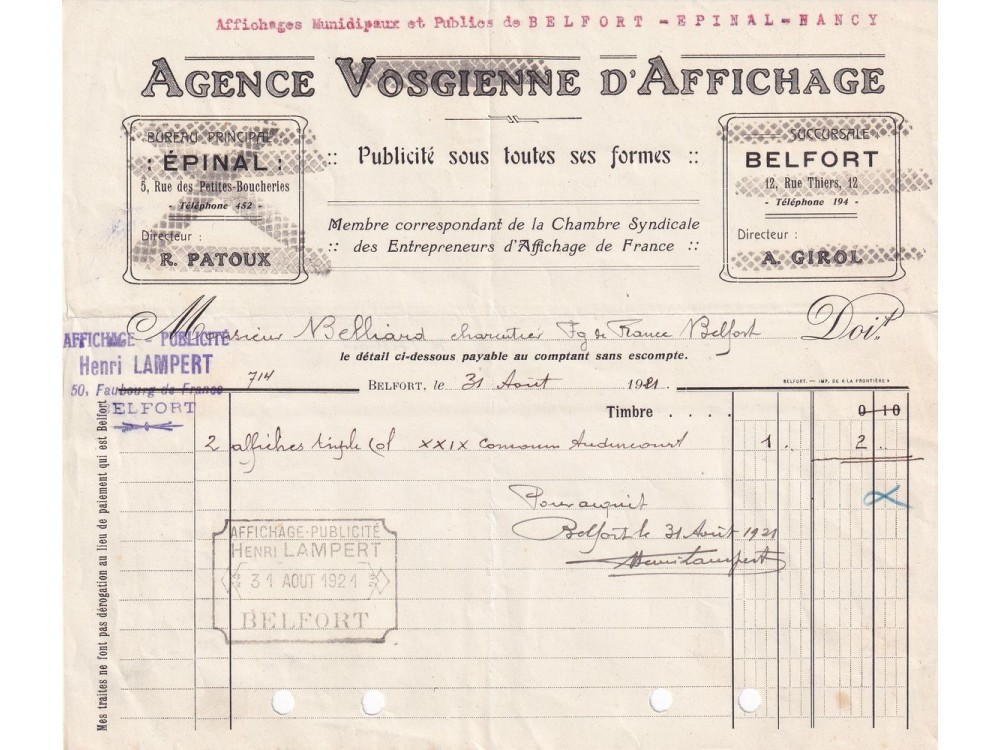 Affichages Munidipaux et Publics de BELFORT - EPINAL - NANCY
AGENCE VOSGIENNE D'AFFICHAGE
BUREAU PRINCIPAL
: ÉPINAL :
5, Rue des Petites-Boucheries
- Téléphone 452 -
Directeur :
R. PATOUX
:: Publicité sous toutes ses formes ::
Membre correspondant de la Chambre Syndicale
:: des Entrepreneurs d'Affichage de France ::
SUCCURSALE
BELFORT
12, Rue Thiers, 12
- Téléphone 194 -
Directeur :
A. GIROL
Monsieur Belliard charcutier Fg de France Belfort Doit
le détail ci-dessous payable au comptant sans escompte.
AFFICHAGE - PUBLICITÉ
Henri LAMPERT
50, Faubourg de France
BELFORT
714
BELFORT, le 31 Août 1921.
BELFORT. — IMP. DE « LA FRONTIÈRE »
Timbre . . . . 0 10
2 affiches triple Col XXIX Audincourt 1 .. 2 ..
Pour acquit
Belfort le 31 Août 1921
Henri Lampert
AFFICHAGE-PUBLICITÉ
HENRI LAMPERT
31 AOUT 1921
BELFORT
Mes traites ne font pas dérogation au lieu de paiement qui est Belfort